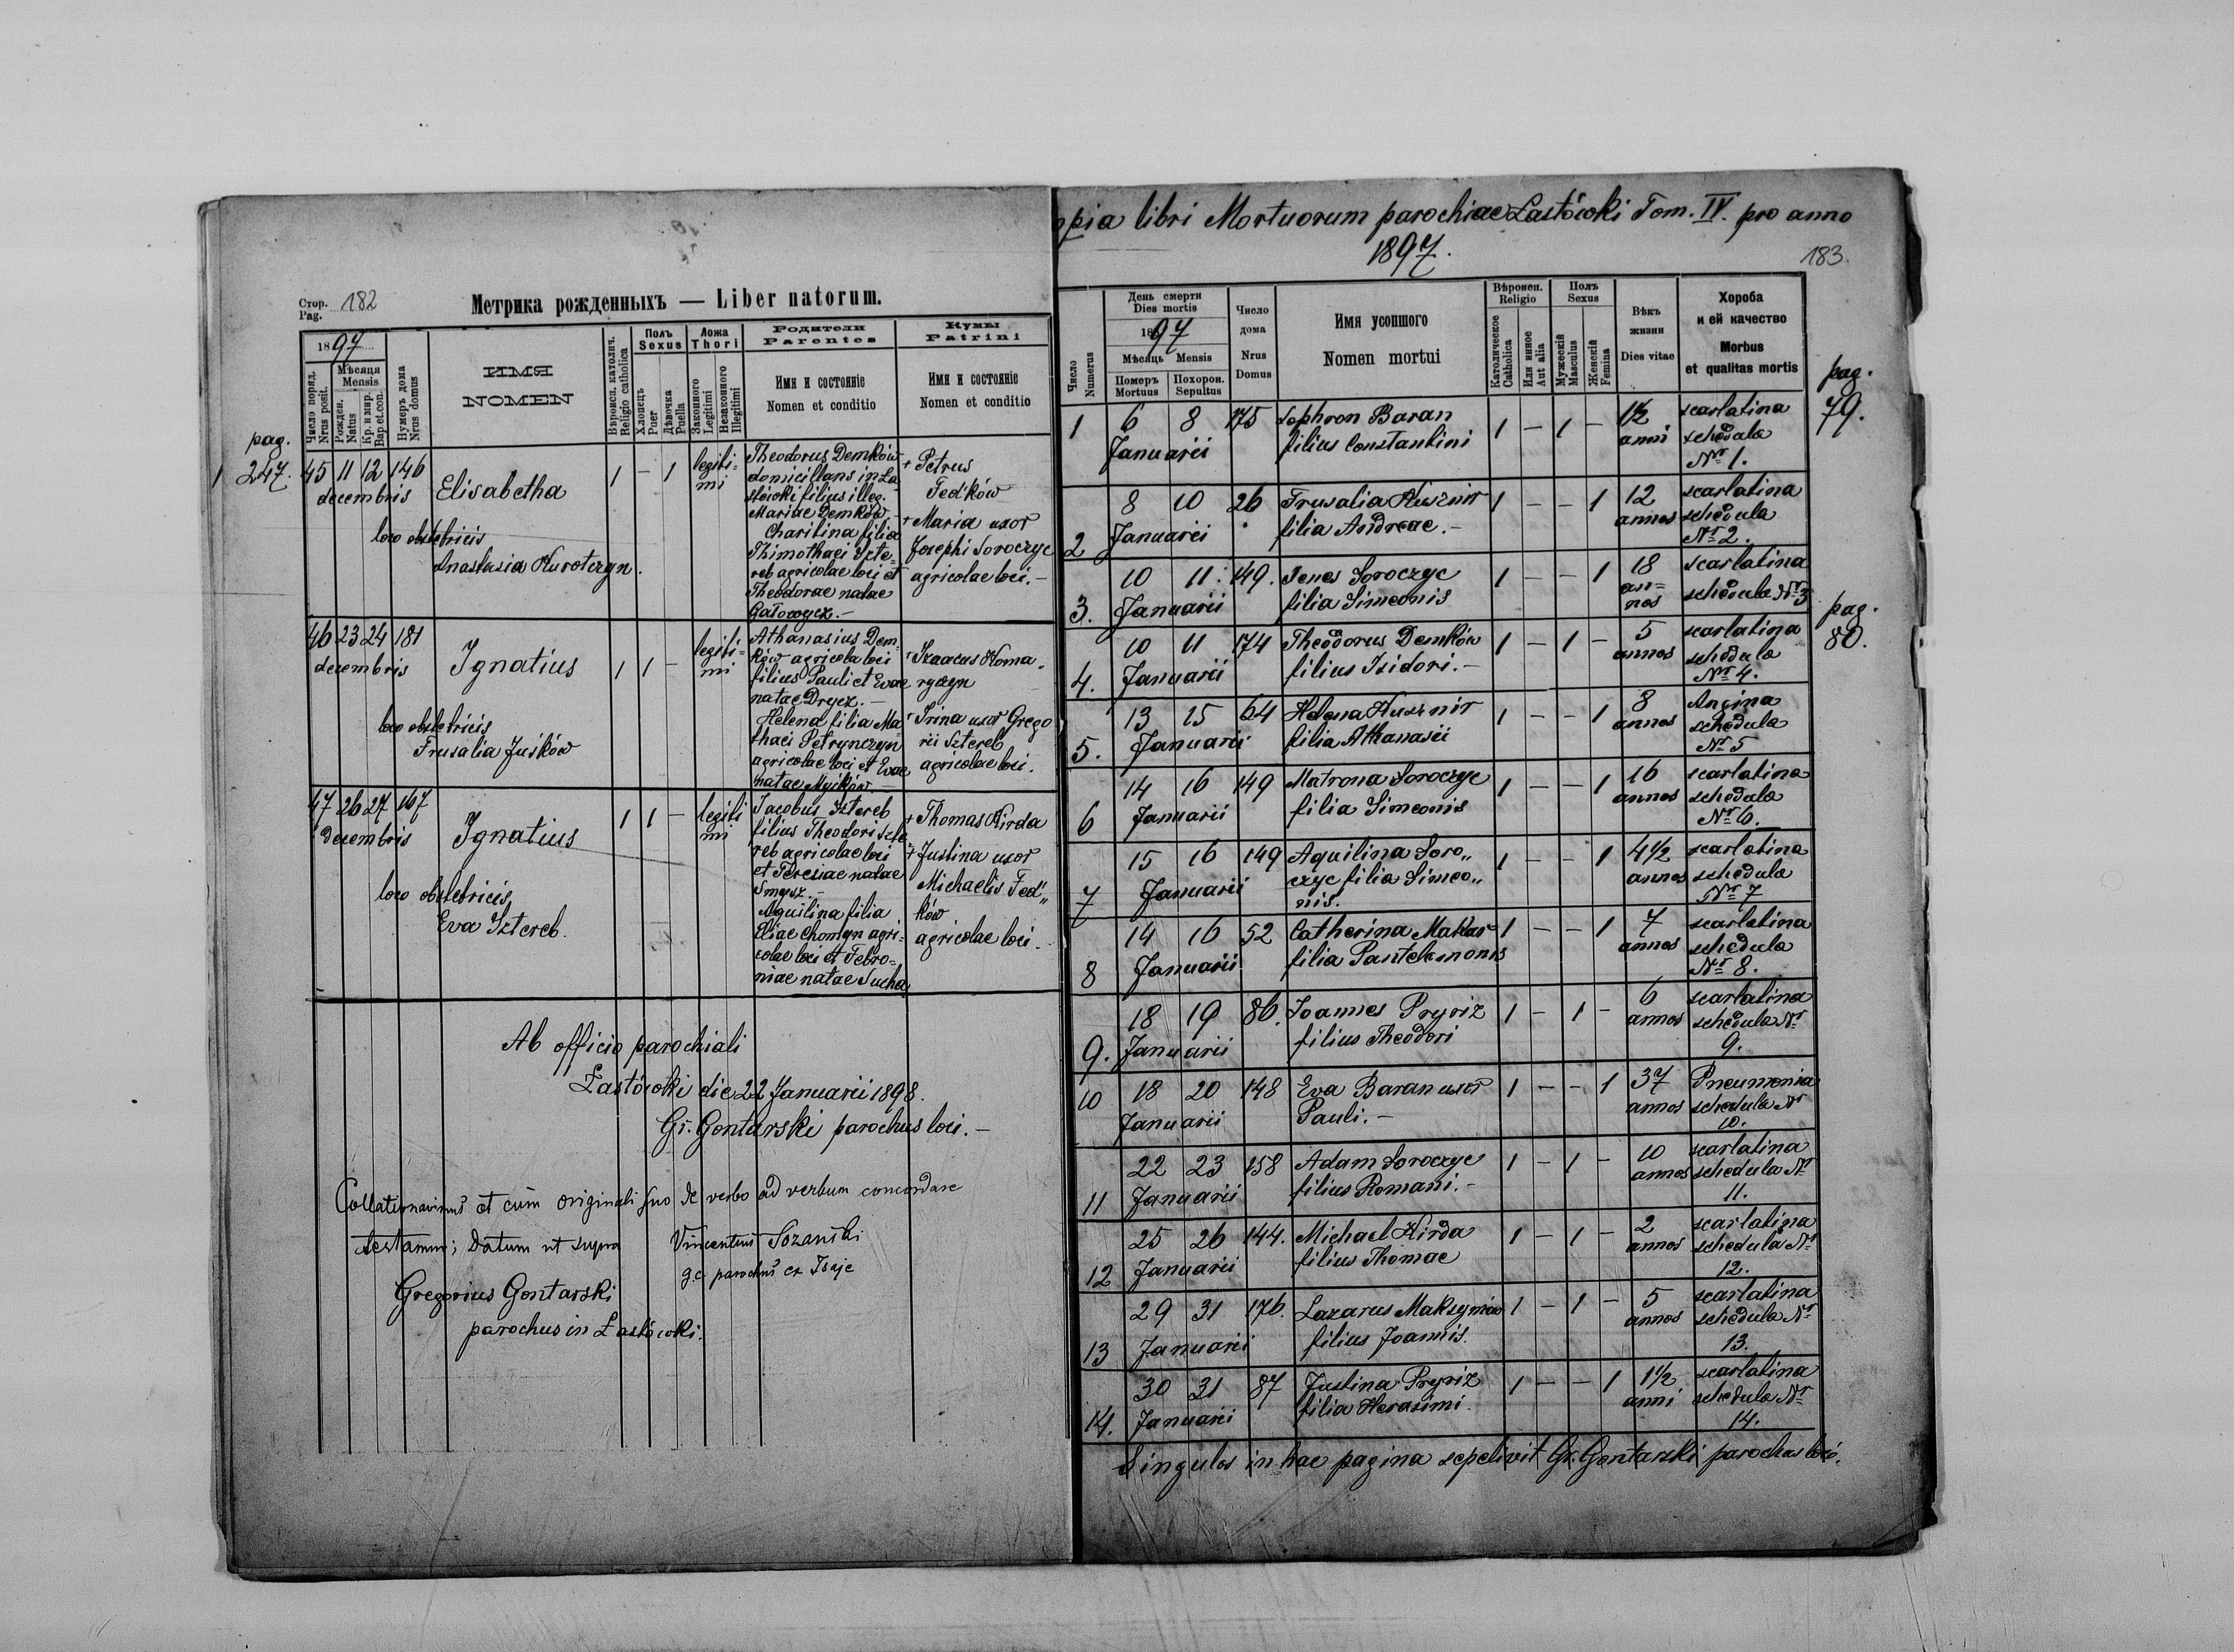 Стор.
Pag. 182
Метрика рожденныхъ — Liber natorum.
1897
Число поряд.
Nrus posit.
Мѣсяця
Mensis
Рожден.
Natus
Кр. и мир.
Bap. et con.
Нумеръ дома
Nrus domus
ИМЯ
NOMEN
Вѣроисп. католич.
Religio catholica
Полъ
Sexus
Хлопецъ
Puer
Дѣвочка
Puella
Ложа
Thori
Законного
Legitimi
Незаконного
Illegitimi
Родители
Parentes
Имя и состояніе
Nomen et conditio
Кумы
Patrini
Имя и состояніе
Nomen et conditio
pag.
1 247.
45 11 12 146
decembris
Elisabetha
1 – 1
legiti=
mi
loco obstetricis
Anastasia Kurotczyn.
Theodorus Demków
domicillans in Ła
stówki filius illeg.
Mariae Demków. –
Charitina filia
Thimothaei Szte=
reb agricolae loci et
Theodorae natae
Gatowycz. –
+ Petrus
Fedków
+ Maria uxor
Josephi Soroczyc
agricolae loci. –
46 23 24 181
decembris
Ignatius
1 1 –
legiti=
mi
loco obstetricis
Frusalia Juśków
Athanasius Dem=
ków agricola loci
filius Pauli et Evae
natae Drycz. –
Helena filia Ma
thaei Petrynczyn
agricolae loci et Evae
natae Myików. –
+ Isaacus Koma.
ryczyn
+ Irina uxor Grego
rii Sztereb
agricolae loci.
47 26 27 167
Decembris
Ignatius
1 1 –
legiti
mi
loco obstetricis
Eva Sztereb.
Jacobus Sztereb
filius Theodori Szte
reb agricolae loci
et Teresiae natae
Smysz. –
Aquilina filia
Eliae Chomyn agri=
colae loci et Febro=
niae natae Sucha
+ Thomas Kirda
+ Justina uxor
Michaelis Fed„
ków
agricolae loci. –
Ab officio parochiali
Łastówki die 22 Januarii 1898.
Gr. Gontarski parochus loci. –
Collationavimus et cum originali suo de verbo ad verbum concordare
testamur; Datum ut supra
Vincentius Sozański
g. c. parochus ex Isaje
Gregorius Gontarski
parochus in Łastówki.
pia libri Mortuorum parochiae Łastówki Tom. IV. pro anno
1897.
183.
Число
Numerus
День смерти
Dies mortis
1897
Мѣсяць Mensis
Померъ
Mortuus
Похорон.
Sepultus
Число
дома
Nrus
Domus
Имя усопшого
Nomen mortui
Вѣроисп.
Religio
Католическое
Catholica
Или иное
Aut alia
Полъ
Sexus
Мужескій
Masculus
Женскій
Femina
Вѣкъ
жизни
Dies vitae
Хороба
и ей качество
Morbus
et qualitas mortis
pag.
79.
1 6 8 175 Sophron Baran 1 – 1 – 1½ scarlatina
Januarii filius Constantini anni schedula
Nr 1.
8 10 26 Frusalia Kusznir 1 – – 1 12 scarlatina
2 Januarii filia Andreae. – annos schedula
Nr 2.
10 11 149. Tenes Soroczyc 1 – – 1 18 scarlatina
3. Januarii filia Simeonis an=
nos schedula Nr 3
pag.
80.
10 11 174 Theodorus Demków 1 – 1 – 5 scarlatina
4. Januarii filius Isidori. – annos schedula
Nr 4.
13 15 64 Helena Kusznir 1 – – 1 8 Angina
5. Januarii filia Athanasii annos schedula
Nr 5
14 16 149 Matrona Soroczyc 1 – – 1 16 scarlatina
6 Januarii filia Simeonis annos schedula
Nr 6.
15 16 149 Aquilina Soro„ 1 – – 1 4½ scarlatina
7 Januarii czyc filia Simeo„ annos schedula
nis. Nr 7
14 16 52 Catherina Makar 1 – – 1 7 scarlatina
8 Januarii filia Pantelemonis annos schedula
Nr 8.
18 19 86. Joannes Pryriz 1 – 1 – 6 scarlatina
9. Januarii filius Theodori annos schedula Nr
9.
10 18 20 148 Eva Baran uxor 1 – – 1 37 Pneumonia
Januarii Pauli. – annos schedula Nr
10.
22 23 158 Adam Soroczyc 1 – 1 – 10 scarlatina
11 Januarii filius Romani. – annos schedula Nr
11.
25 26 144. Michael Kirda 1 – 1 – 2 scarlatina
12 Januarii filius Thomae annos schedula Nr
12.
29 31 176. Lazarus Maksymiw 1 – 1 – 5 scarlatina
13 Januarii filius Joannis. annos schedula Nr
13.
30 31 87 Justina Pryriz 1 – – 1 1½ scarlatina
14. Januarii filia Herasimi. anni schedula Nr
14.
Singulos in hac pagina sepelivit Gr. Gontarski parochus loci.